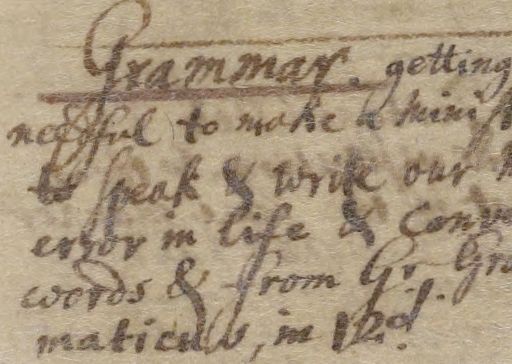 Grammar. getting
needful to make a minist
to speak & write our
error in life & conv
words & from Gr. Gra
maticus, in 12.d